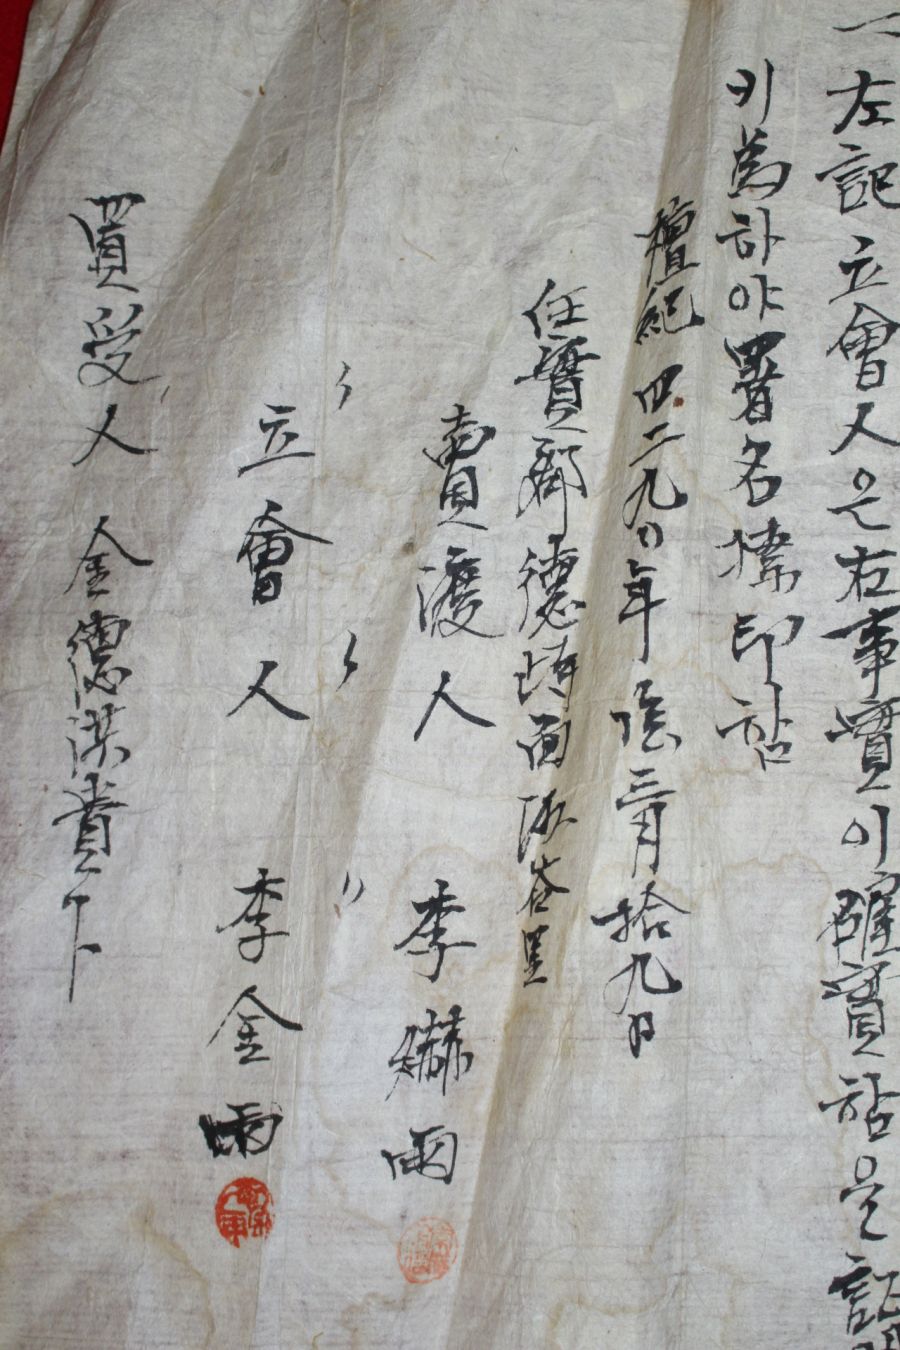 一 左記 立會人은 右事實이 確實함을 證明
키 爲하야 署名捺印함
檀紀 四二九〇年 陰 三月 拾九日
任實郡 德峙面 里
賣渡人 李 雨
〃 〃 〃
立會人 李金雨
買受人 金德洪 貴下